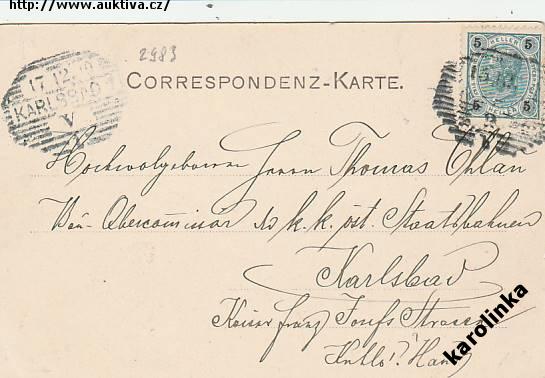 http://www.auktiva.cz/
2983
17.12.
KARLSBAD 1
V
CORRESPONDENZ-KARTE.
5 HELLER 5
5 HELLER 5
Hochwolgeboren Herrn Thomas
Bau-Obercommissär d. k. k. öst. Staatsbahnen
Karlsbad
Kaiser Franz Josefs Strasse
karolinka